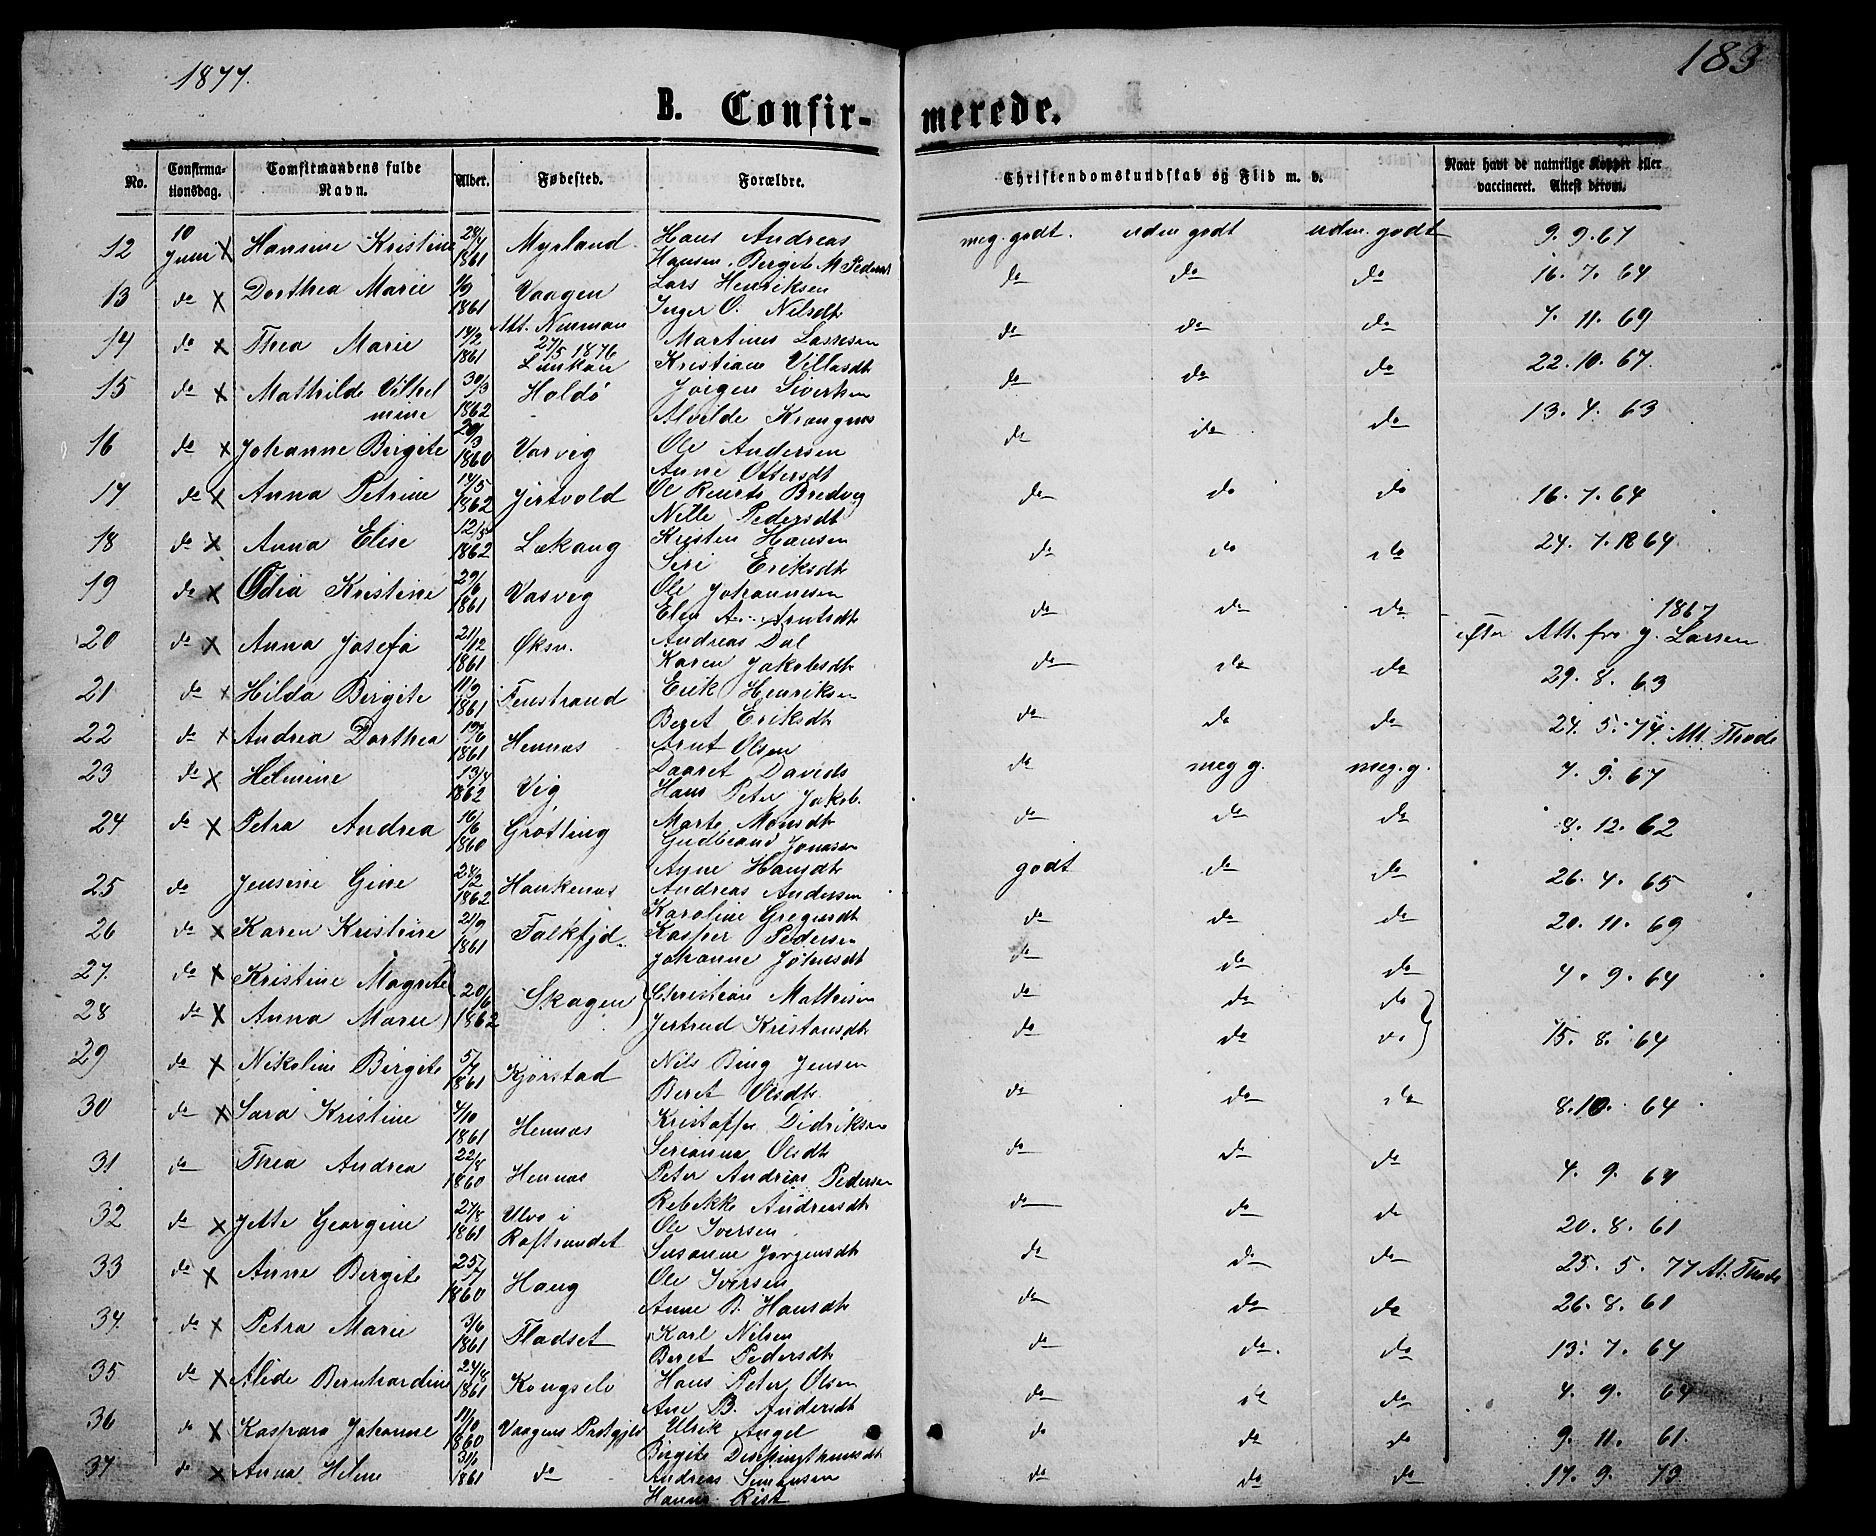 1877. 183
B. Confirmerede.
No. Confirmationsdag. Comfirmandens fulde Navn. Alder. Fødested. Forældre. Christendomskundskab og Flid m. v. Naar havt de naturlige Kopper eller vaccineret. Attest derom.
12 10 Juni x Hansine Kristine 28/7 1861 Myrland. Hans Andreas Hansen. Bergite M Peders meg. godt. uden godt uden. godt 9. 9. 67
13 do x Dorthea Marie 1861 Vaagen Lars Henriksen Inger O. Nilsdt do do do 16. 7. 64
14 do x Thea Marie 14/2 1861 Att. Nurman 27/5 1876 Martinus Lassesen Kristiane Villasdt do do do 7. 11. 69
15 do x Mathilde Vilhelmine 30/3 1862 Holdø Jørgen Sivertsen Alvilde Krongnes do do do 22. 10. 67.
16 do x Johanne Birgite 29/3 1860 Vorvig Ole Andersen Anne Ottersdt do do do 13. 4. 63
17 do x Anna Petrine 14/5 1862 Jertvold Ol Reierts Bredveg Nille Pedersdt do do do 16. 7. 64
18 do x Anna Elise 12/5 1862 Lekang Kristen Hansen Siri Eriksdt do do do 24. 7. 1864
19 do x Odia Kristine 29/ 1861 Vasvig Ole Johannesen Elen A. Arntsdt do do do
20 do x Anna Josefa 21/12 1861 Øksn. Andreas Dal Karen Jakobsdt do do do 1867 efter Att. fra J. Larsen
21 do x Hilda Birgite 11/9 1861 Fenstrand Erik Henriksen Beret Eriksdt do do do 29. 8. 63
22 do x Andrea Dorthea 19/6 1861 Hennes Arnt Olsen Daaret Davids do do do 24. 5. 74. Att. Thode
23 do x Helmine 13/4 1862 Vig Hans Peter Jakob. Marte Monsdt do meg g. meg. g. 7. 9. 67
24 do x Petra Andrea 16/6 1860 Grøtting Gudbrand Jonasen Anne Hansdt do do do 8. 12. 62
25 do Jensine Gine 24/2 1862 Hankenes Andreas Andersen Karoline Gregersdt godt do do 26. 4. 65
26 do x Karen Kristine 21/9 1861 Falkfjd. Kasper Pedersen Johanne Johnsdt do do do 20. 11. 69
27. do x Kristine Magrete do do do 4. 9. 64
28 do x Anna Marie 20/6 1862 Skagen Christian Mathisen Jertrud Kristansdt do do do
29 do x Nikoline Birgite 5/7 1861 Kjørstad Nils Bing Jensen Beret Olsdt do do do 15. 8. 64
30 do x Sara Kristine 4/10 1861 Hennes Kristoffer Didriksen Serianna Olsdt do do do 8. 10. 64
31 do Thea Andrea 22/8 1860 Hennes Peter Andreas Pedersen Rebekke Andreasdt do do do 4. 9. 64
32 do x Jette Georgine 27/8 1861 Ulvo i Raftsundet Ole Iversen Susanne Jørgensdt do do do 20. 8. 61
33 do x Anne Bergite 25/7 1860 Haug Ole Iversen Anne B. Hansdt do do do 25. 5. 77 At. Thode
34. do x Petra Marie 3/6 1861 Fladset Karl Nilsen Beret Pedersdt do do do 26. 8. 61
35 do x Alide Bernhardine 24/8 1861 Kongselv Hans Peter Olsen Ane B. Andersdt do do. do 13. 7. 64
36 do x Kaspara Johanne 11/10 1860 Vaagens Prstgjeld Ulrik Angel do do do 4. 9. 64
37 do x Anna Helene 31/6 1861 do Andreas Simonsen Hanna Rist do do do 9. 11. 61.
do do do 17. 9. 73